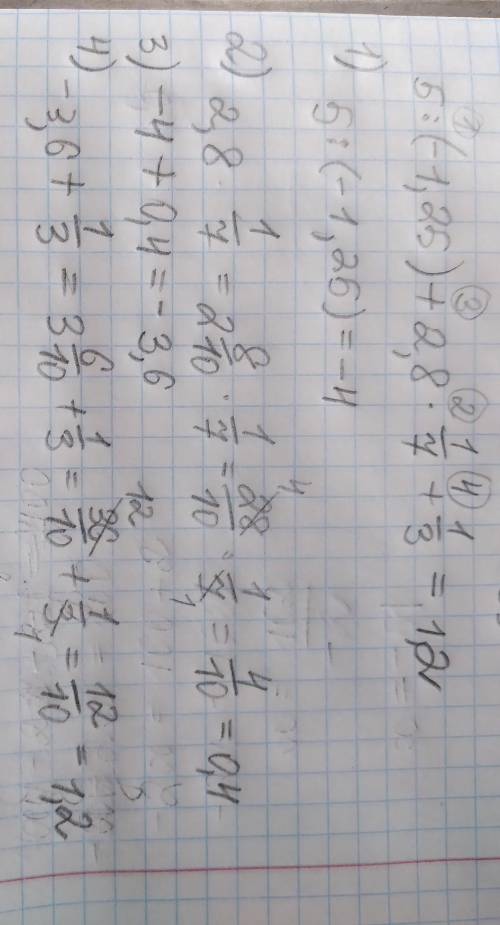 ① ③ ② ④
5:(-1,25)+2,8·1/7+1/3=1,2
1) 5:(-1,25)=-4
2) 2,8·1/7=2 8/10·1/7=28/10·1/7=4/10=0,4
4 1
3) -4+0,4=-3,6
12
4) -3,6+1/3=3 6/10+1/3=36/10+1/3=12/10=1,2